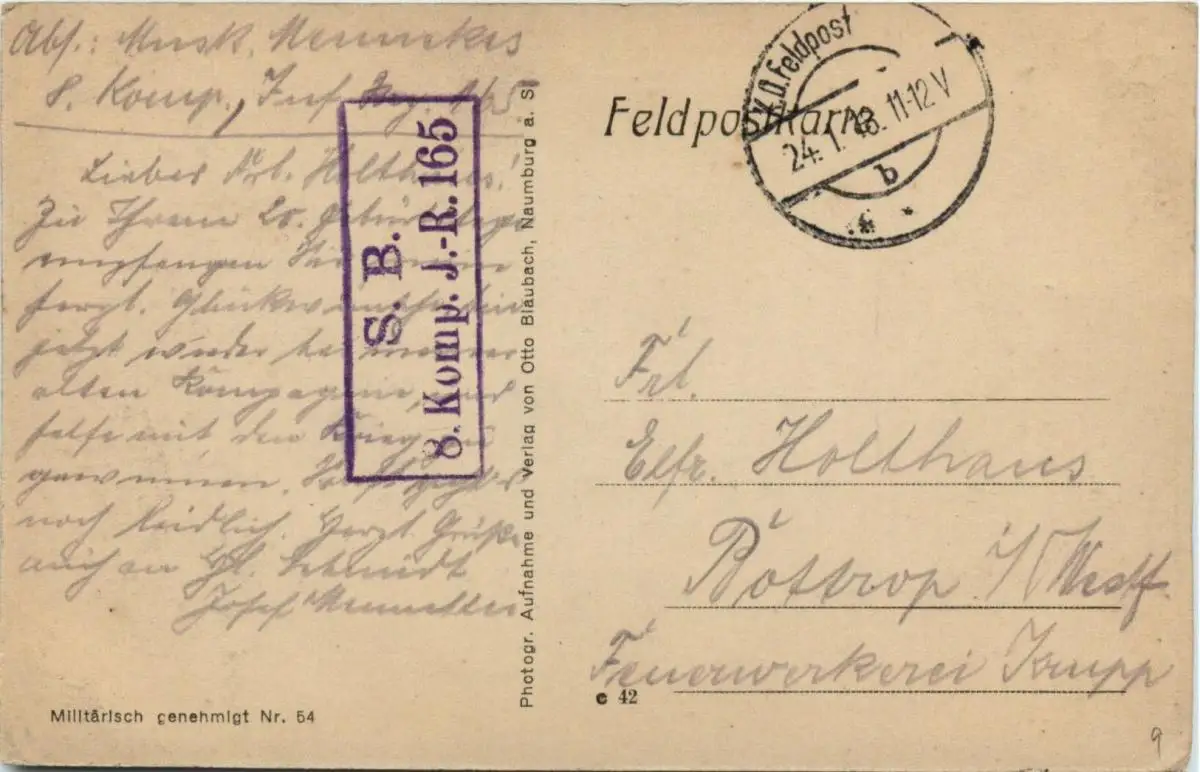 Abs.: Musk. Mennekes
8. Komp., Inf. Reg. 165
Lieber Frl. Holthaus!
Zu Ihrem 20. Geburtstage
empfangen Sie meine
herzl. Glückwünsche. Bin
jetzt wieder bei meiner
alten Kompagnie, und
helfe mit den Krieg zu
gewinnen.
noch leidlich. Herzl. Grüße
auch an Hl. Schmidt
Josef Mennekes
S. B.
8. Komp. J.-R. 165
Militärisch genehmigt Nr. 54
Photogr. Aufnahme und Verlag von Otto Blaubach, Naumburg a. S.
Feldpostkarte
K.D. Feldpost
24. 1. 18. 11-12 V
b
Frl.
Elfr. Holthaus
Bottrop i/Westf.
Feuerwerkerei Krupp
c 42
9